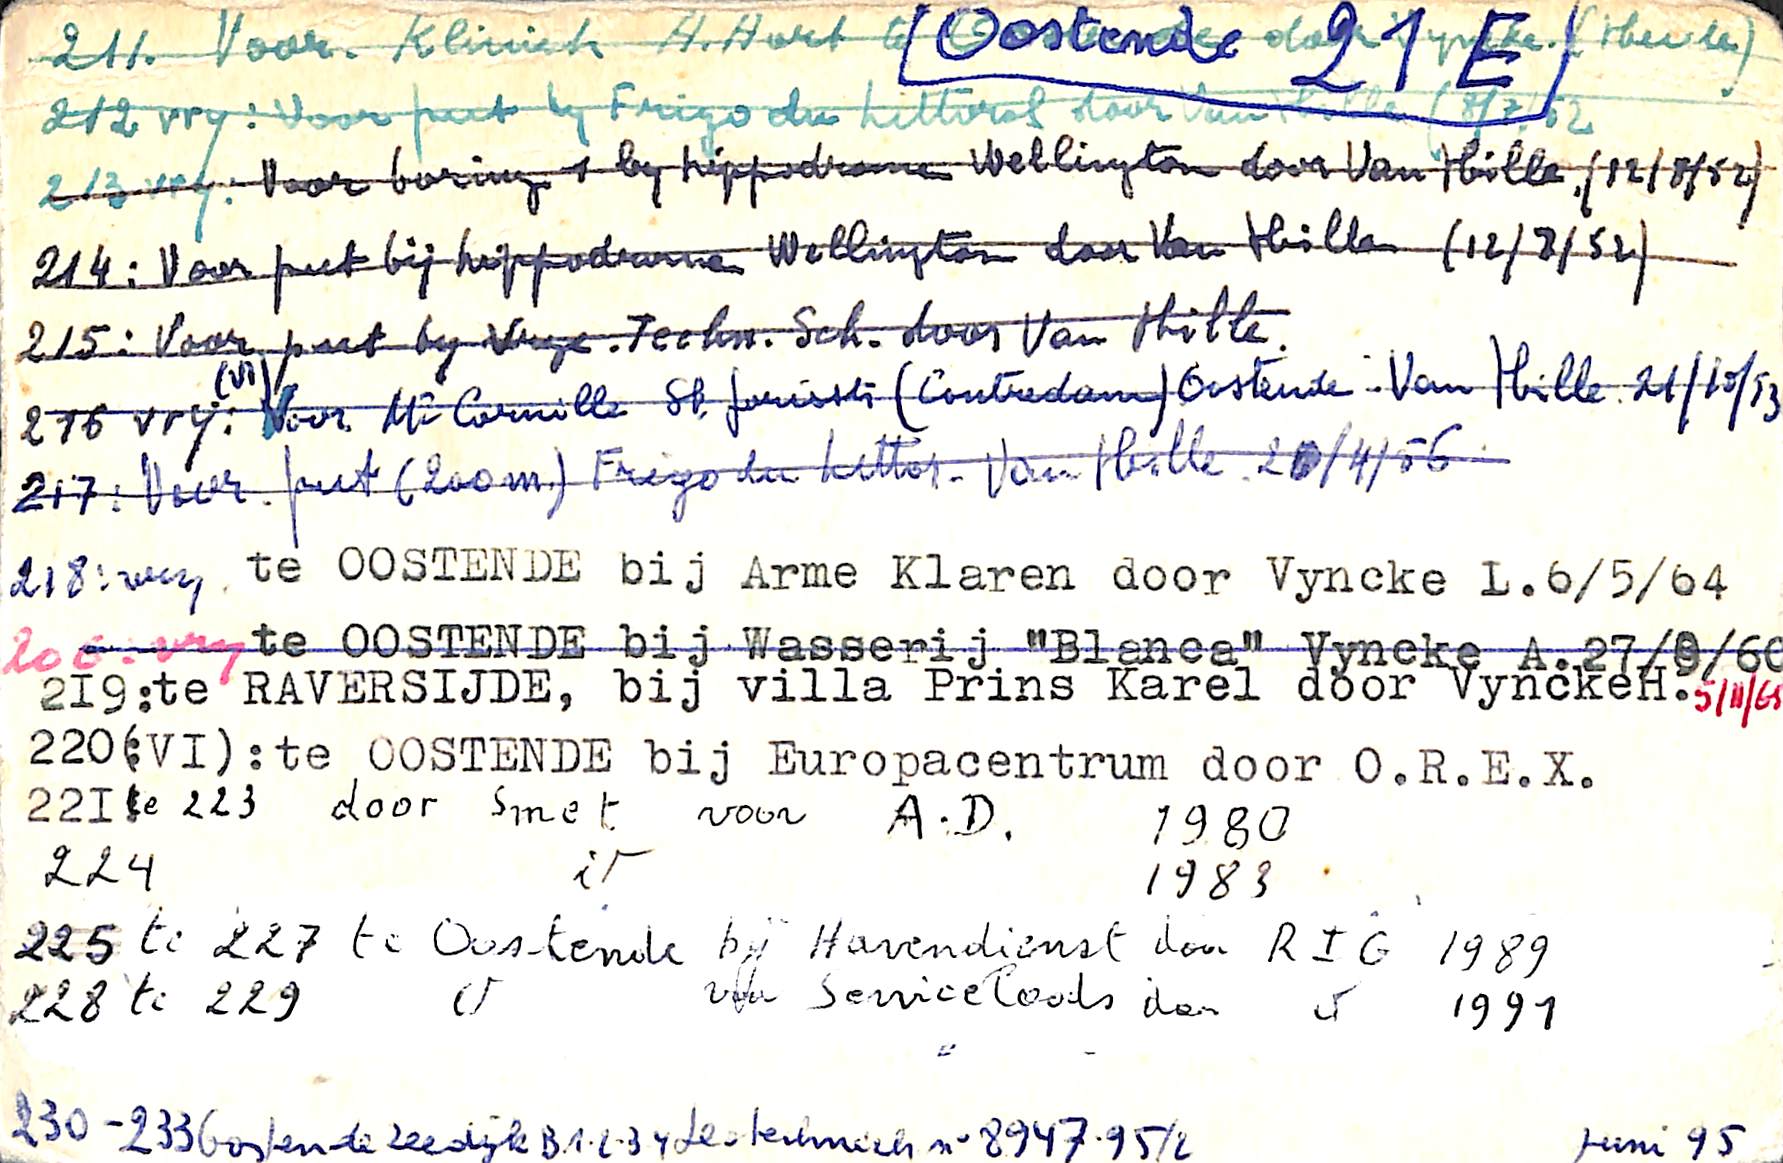 Oostende 21 E
211. Voor. Kliniek H. Hart te door Vyncke.
212 vry: Voor put by Frigo du Littoral door Van Hille (8/7/52
213 vry: Voor boring 1 by hippodrome Wellington door Van Hille. (12/8/52)
214: Voor put bij hippodrome Wellington door Van Hille (12/8/52)
215: Voor put by Vrye. Techn. Sch. door Van Hille.
216 vrij: (VI) Voor Mr Cornille St. Joris str (Contredam) Oostende - Van Hille. 21/10/53
217: Voor. put (200m.) Frigo du Littor. Van Hille. 20/4/56
218: vry te OOSTENDE bij Arme Klaren door Vyncke L.6/5/64
200: vry te OOSTENDE bij Wasserij "Blanca" Vyncke A.27/9/60
2I9:te RAVERSIJDE, bij villa Prins Karel door VynckeH. 5/11/65
220(VI):te OOSTENDE bij Europacentrum door O.R.E.X.
22I te 223 door Smet voor A.D. 1980
224 id 1983
225 te 227 te Oostende bij Havendienst door RIG 1989
228 te 229 id Serviceloods door id 1991
230-233 Oostende Zeedijk B1-2-3 4 Geotechniek n° 8947-95/2 juni 95